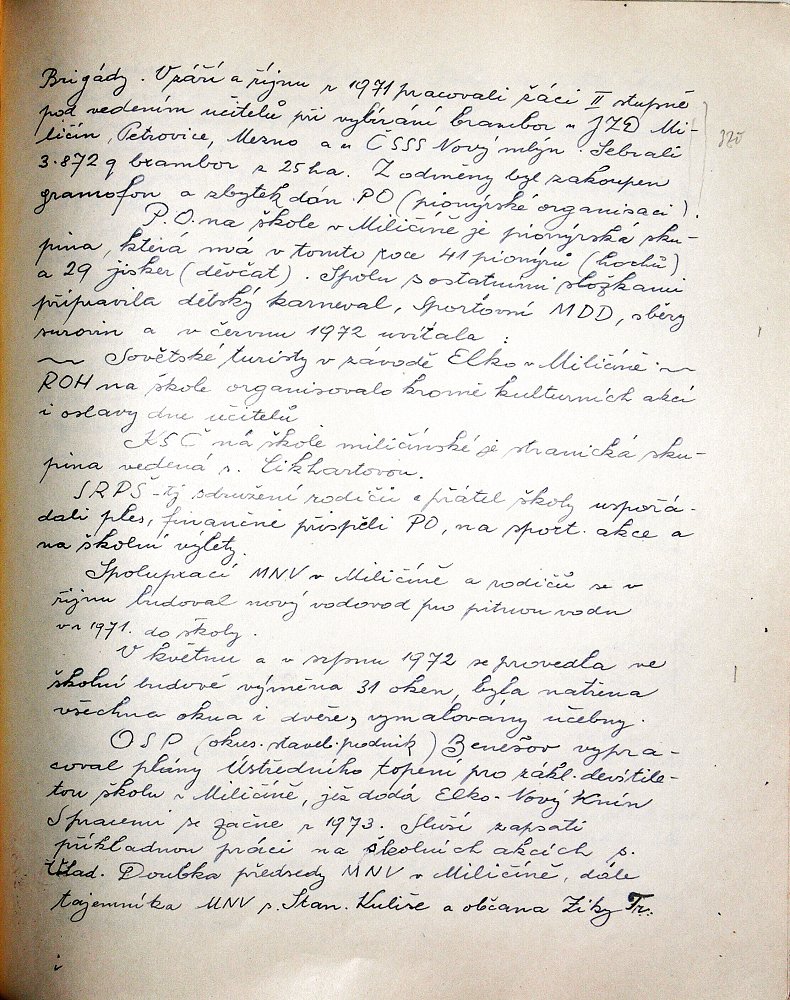 Brigády. V září a říjnu r 1971 pracovali žáci II stupně
pod vedením učitelů při vybírání brambor u JZD Mi-
ličín, Petrovice, Mezno a u ČSSS Nový mlýn. Sebrali
3.872 q brambor z 25 ha. Z odměny byl zakoupen
gramofon a zbytek dán PO (pionýrské organisaci).
P.O. na škole v Miličíně je pionýrská sku-
pina, která má v tomto roce 41 pionýrů (hochů)
a 29 jisker (děvčat). Spolu s ostatními složkami
připravila dětský karneval, Sportovní MDD, sběry
surovin a v červnu 1972 uvítala :
Sovětské turisty v závodě Elko v Miličíně.
ROH na škole organisovalo kromě kulturních akcí
i oslavy dne učitelů
KSČ na škole miličínské je stranická sku-
pina vedená s. Eikhartovou.
SRPŠ-tj sdružení rodičů a přátel školy uspořá-
dali ples, finančně přispěli PO, na sport. akce a
na školní výlety.
Spoluprací MNV v Miličíně a rodičů se v
říjnu budoval nový vodovod pro pitnou vodu
v r 1971. do školy.
V květnu a v srpnu 1972 se provedla ve
školní budově výměna 31 oken, byla natřena
všechna okna i dveře, vymalovány učebny.
OSP (okres. staveb. podnik) Benešov vypra-
coval plány Ústředního topení pro zákl. devítile-
tou školu v Miličíně, jež dodá Elko-Nový Knín
S pracemi se začne r 1973. Sluší zapsati
příkladnou práci na školních akcích s.
Vlad. Doubka předsedy MNV v Miličíně, dále
tajemníka MNV s. Stan. Kuliše a občana Ziky Fr.
JZD